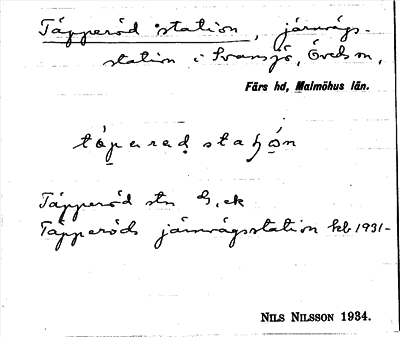 Täpperöd station, järnvägs-
station i Svansjö, Öveds sn,
Färs hd, Malmöhus län.
Täpperöd stn G. ek
Täpperöds järnvägsstation kb 1931-
NILS NILSSON 1934.